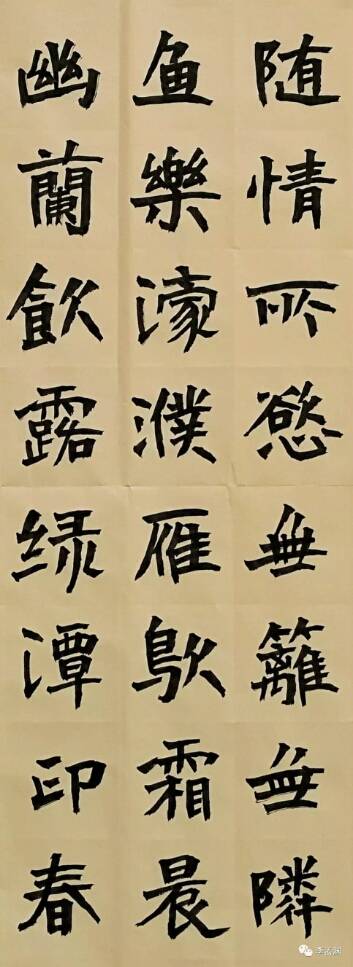 随情所慾無籬無隣
鱼樂濠濮雁霜晨
幽蘭飲露绿潭印春